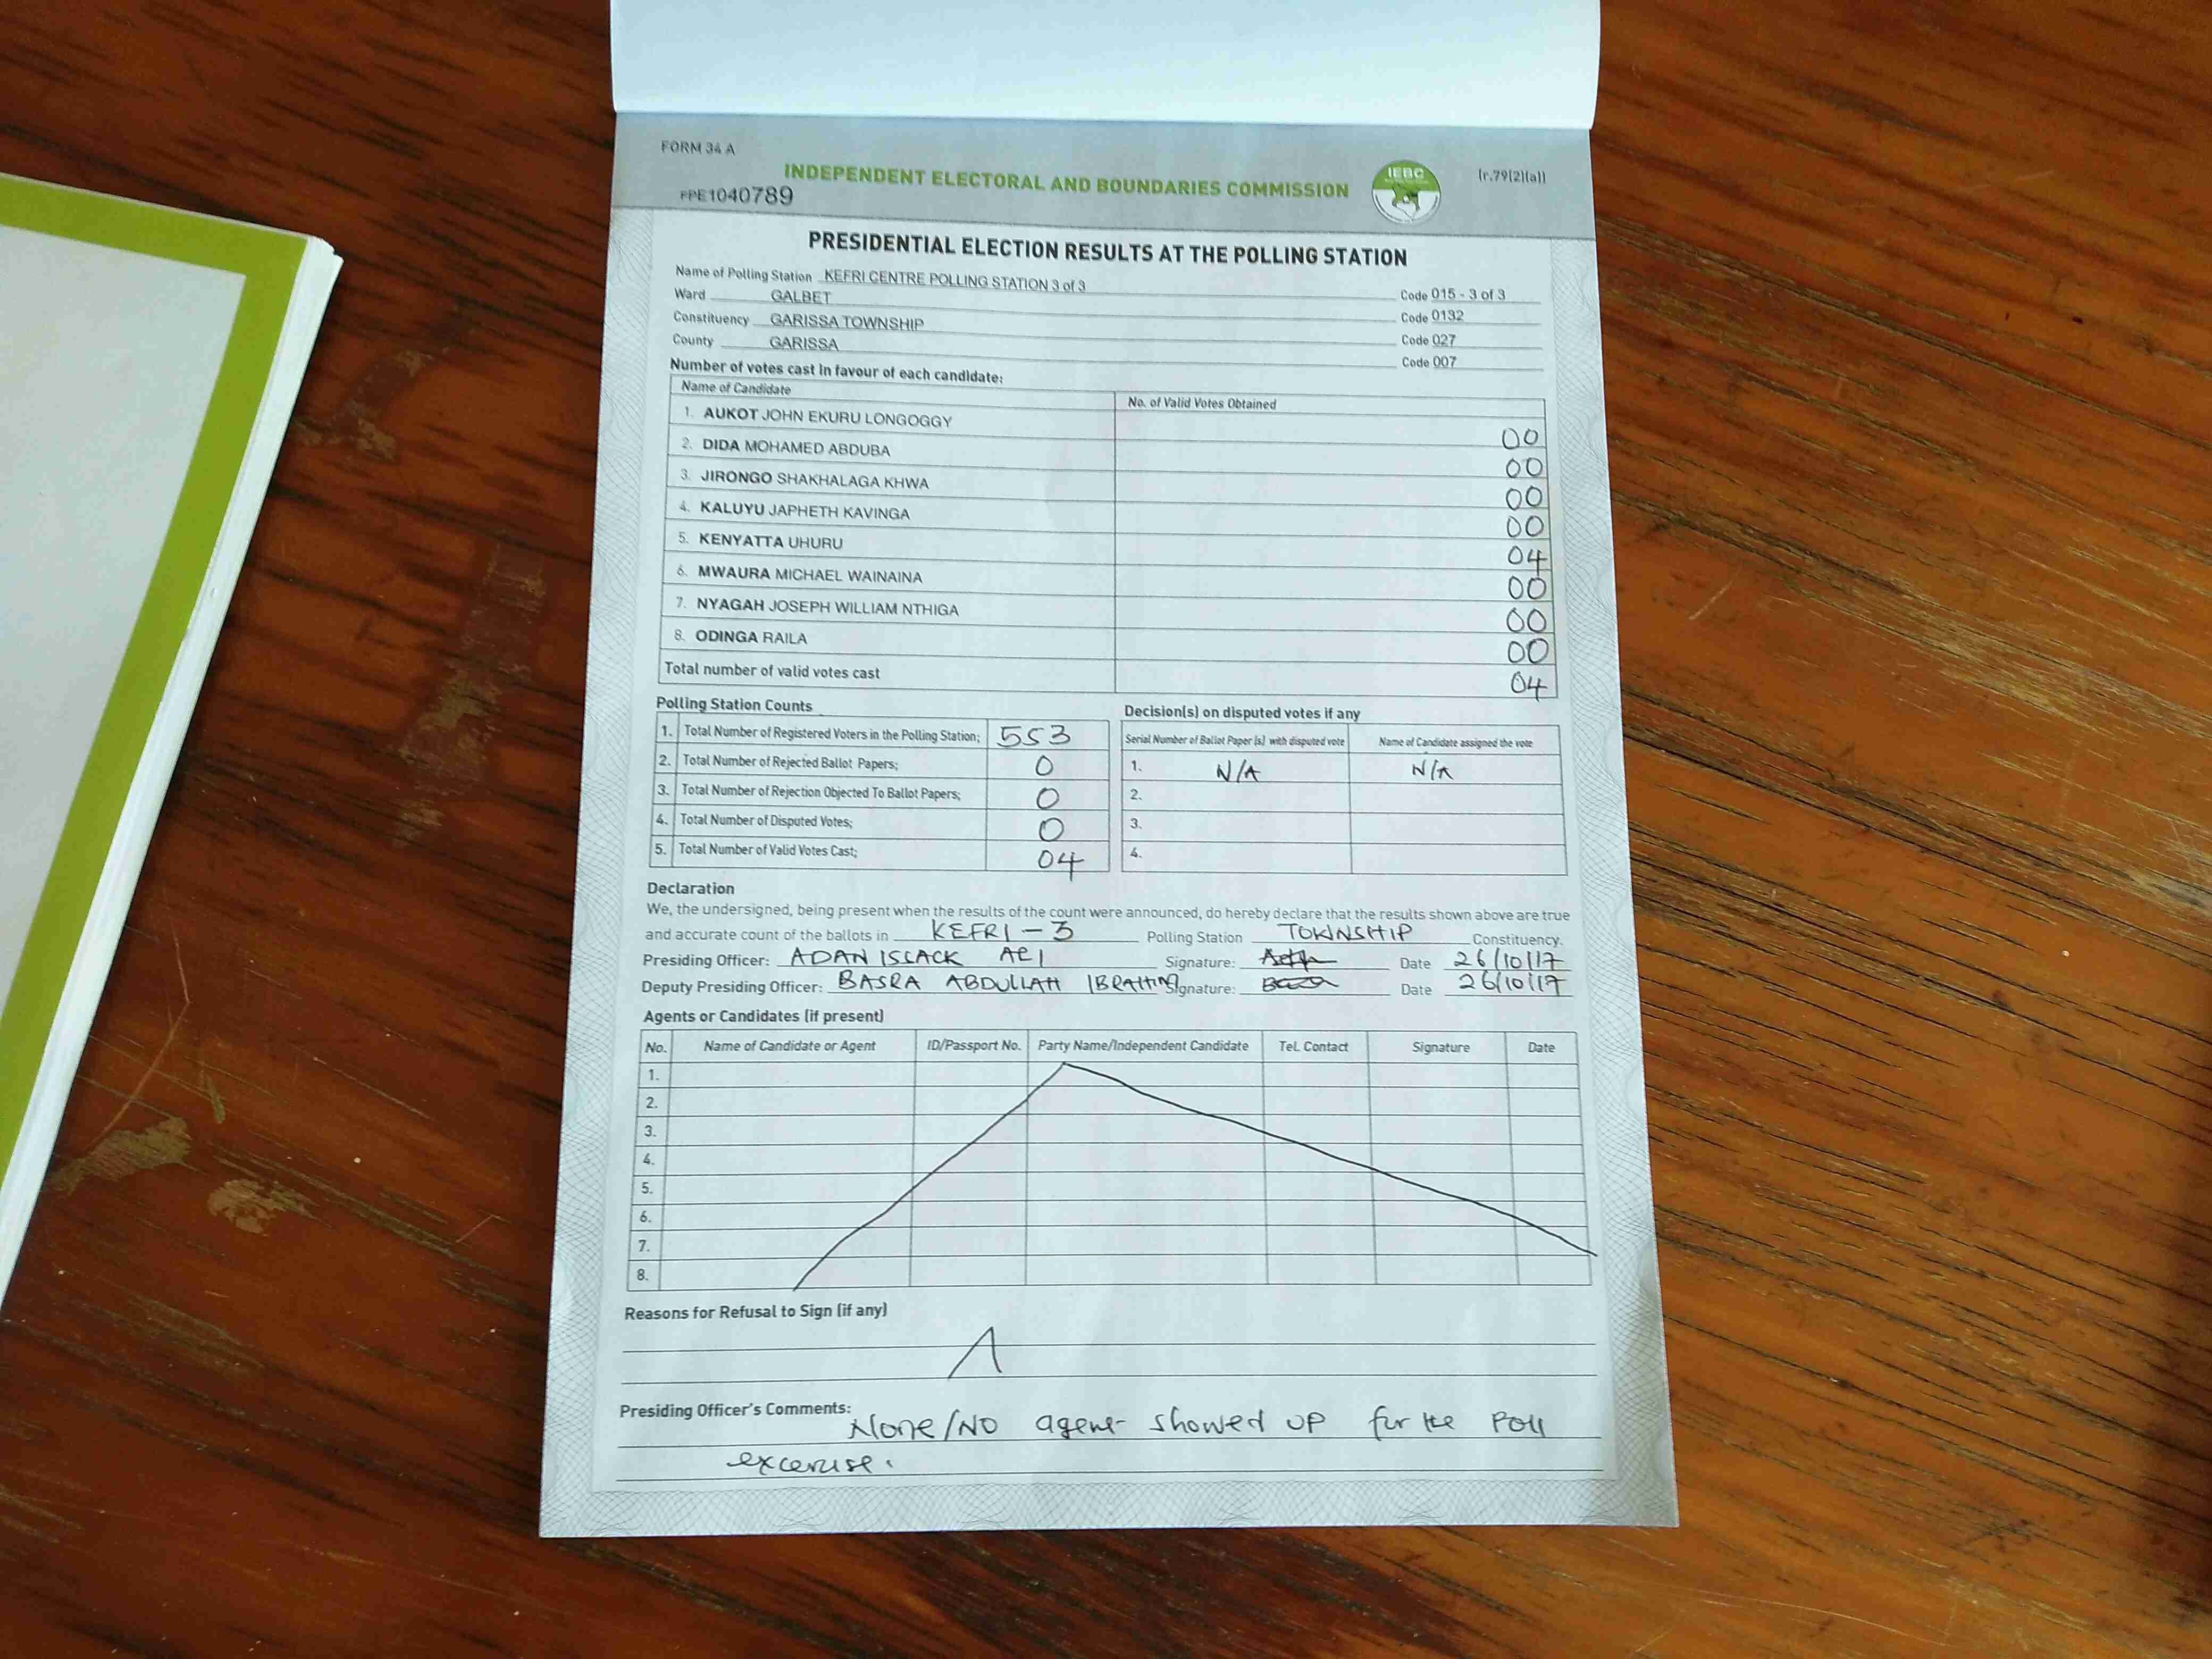 FORM 34 A
INDEPENDENT ELECTORAL AND BOUNDARIES COMMISSION
IEBC
(r.79(2)(a))
PPE1040789
PRESIDENTIAL ELECTION RESULTS AT THE POLLING STATION
Name of Polling Station KEFRI CENTRE POLLING STATION 3 of 3 Code 015 - 3 of 3
Ward GALBET Code 0132
Constituency GARISSA TOWNSHIP Code 027
County GARISSA Code 007
Number of votes cast in favour of each candidate:
Name of Candidate No. of Valid Votes Obtained
1. AUKOT JOHN EKURU LONGOGGY 00
2. DIDA MOHAMED ABDUBA 00
3. JIRONGO SHAKHALAGA KHWA 00
4. KALUYU JAPHETH KAVINGA 00
5. KENYATTA UHURU 04
6. MWAURA MICHAEL WAINAINA 00
7. NYAGAH JOSEPH WILLIAM NTHIGA 00
8. ODINGA RAILA 00
Total number of valid votes cast 04
Polling Station Counts
1. Total Number of Registered Voters in the Polling Station; 553
2. Total Number of Rejected Ballot Papers; 0
3. Total Number of Rejection Objected To Ballot Papers; 0
4. Total Number of Disputed Votes; 0
5. Total Number of Valid Votes Cast; 04
Decision(s) on disputed votes if any
Serial Number of Ballot Paper (s) with disputed vote Name of Candidate assigned the vote
1. N/A N/A
2.
3.
4.
Declaration
We, the undersigned, being present when the results of the count were announced, do hereby declare that the results shown above are true
and accurate count of the ballots in KEFRI - 3 Polling Station TOWNSHIP Constituency.
Presiding Officer: ADAN ISSACK Signature: Date 26/10/17
Deputy Presiding Officer: BASRA ABDULLAH IBRAHIM Signature: Date 26/10/17
Agents or Candidates (if present)
No. Name of Candidate or Agent ID/Passport No. Party Name/Independent Candidate Tel. Contact Signature Date
1.
2.
3.
4.
5.
6.
7.
8.
Reasons for Refusal to Sign (if any)
Presiding Officer's Comments: None/NO agent showed UP for the Poll
excerise.